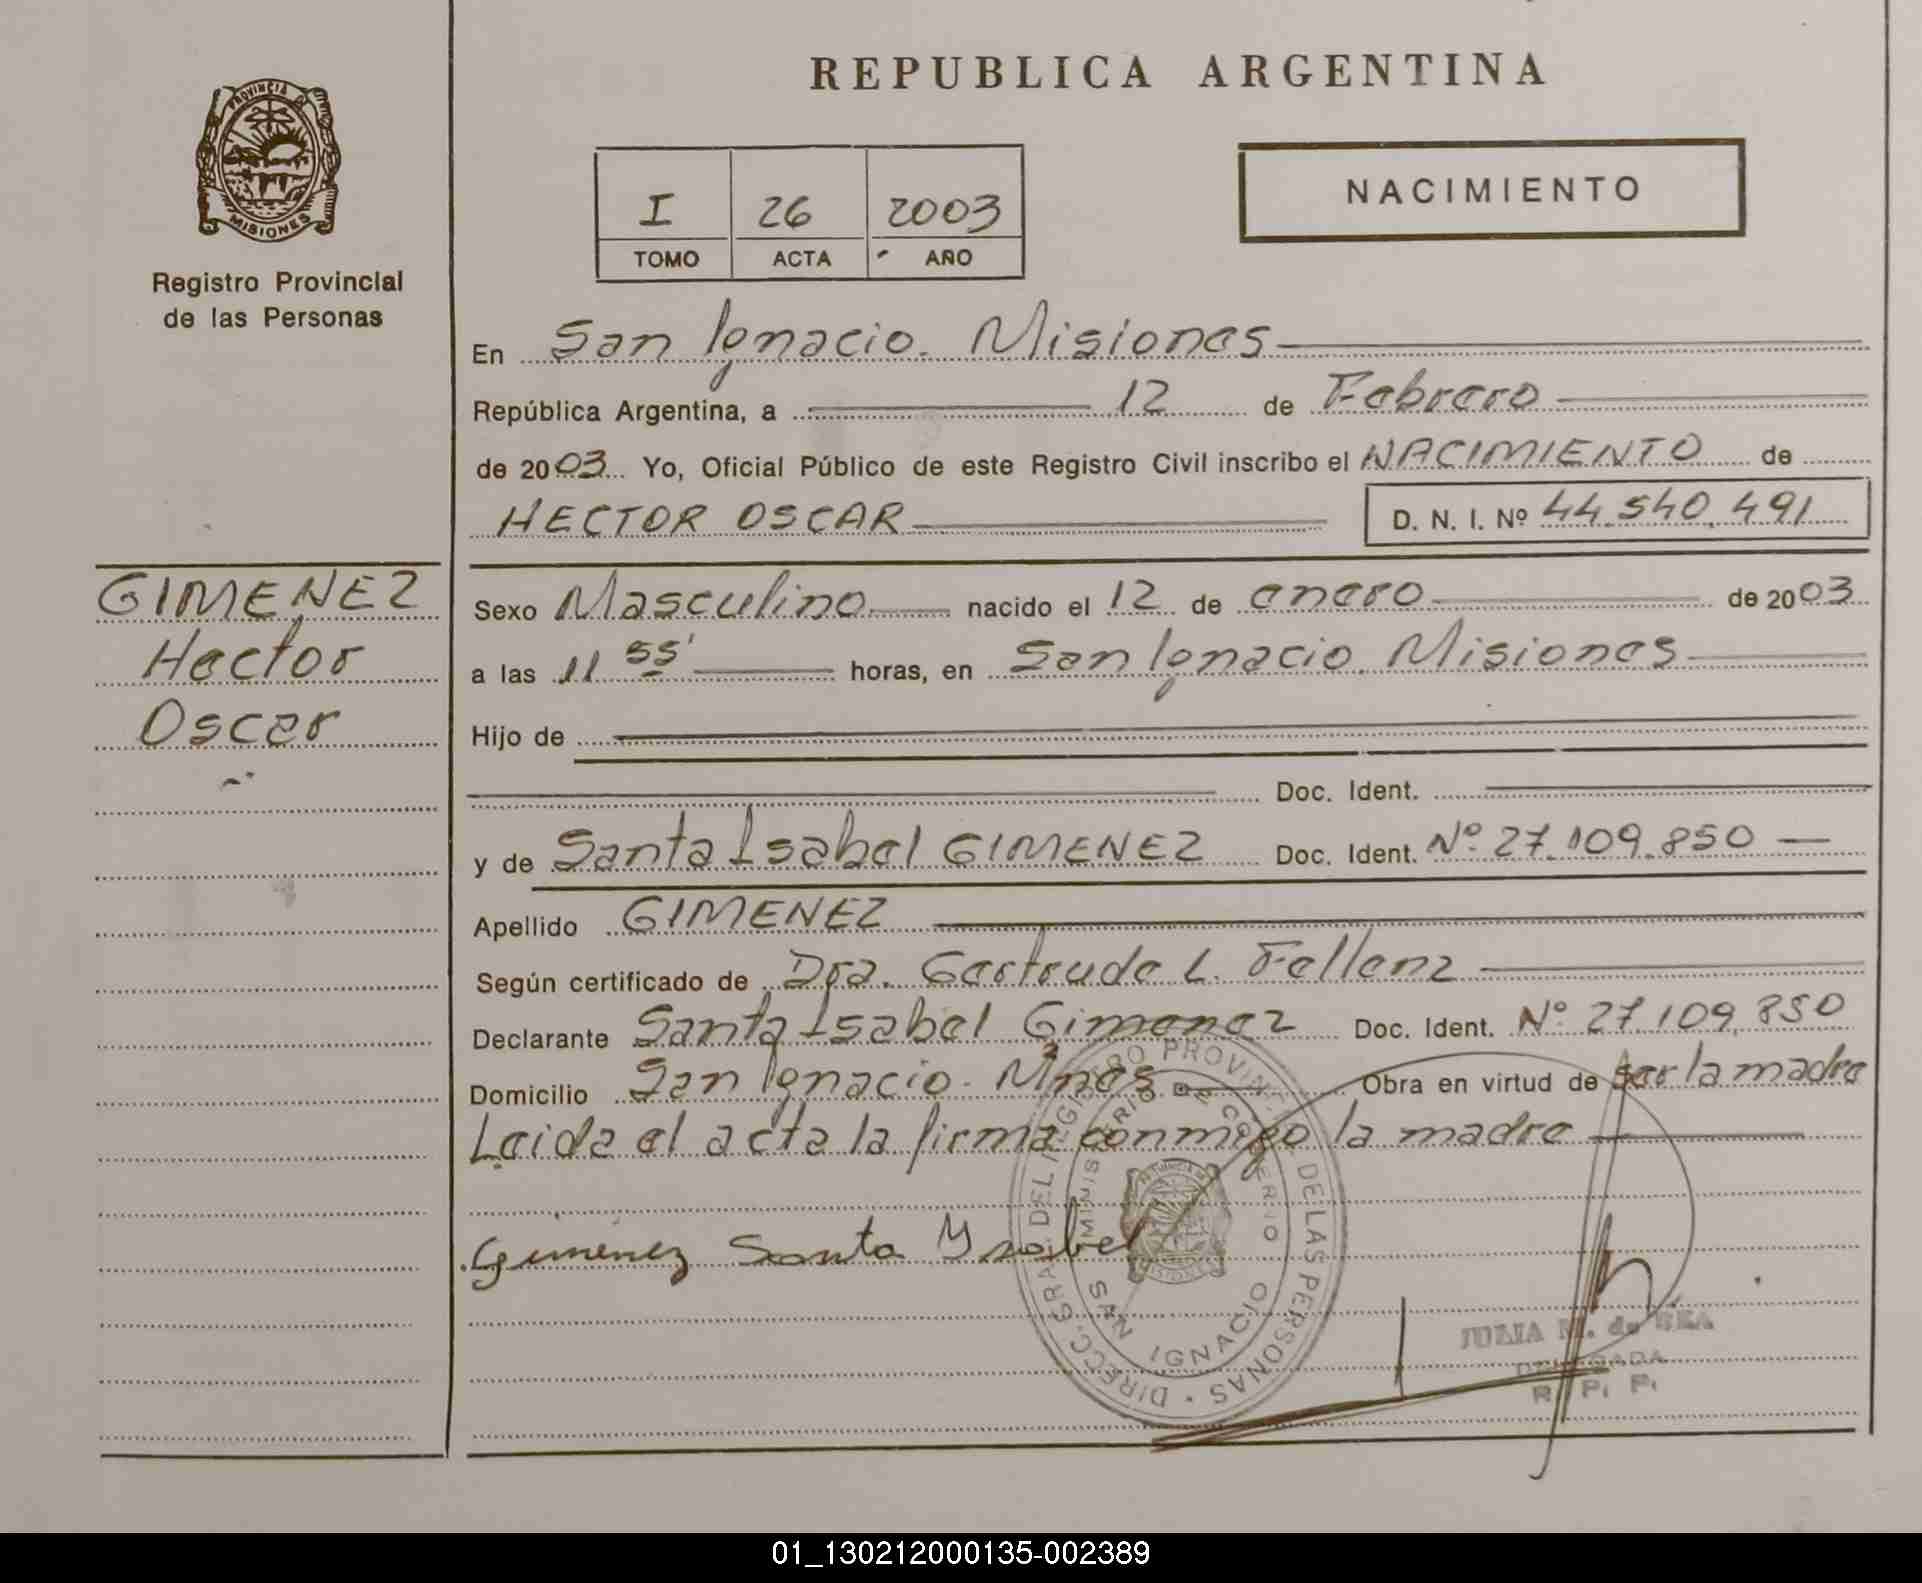 REPUBLICA ARGENTINA
PROVINCIA D MISIONES
Registro Provincial
de las Personas
I 26 2003
TOMO ACTA AÑO
NACIMIENTO
En San Ignacio. Misiones
República Argentina, a 12 de Febrero
de 2003 Yo, Oficial Público de este Registro Civil inscribo el NACIMIENTO de
HECTOR OSCAR D. N. I. Nº 44.540.491
GIMENEZ
Hector
Oscar
Sexo Masculino nacido el 12 de enero de 2003
a las 11 55' horas, en San Ignacio. Misiones
Hijo de
Doc. Ident.
y de Santa Isabel GIMENEZ Doc. Ident. Nº 27.109.850
Apellido GIMENEZ
Según certificado de Dra. Gertrude L. Fellenz
Declarante Santa Isabel Gimenez Doc. Ident. Nº 27.109.850
Domicilio San Ignacio. Mnes Obra en virtud de ser la madre
Leida el acta la firma conmigo la madre
Gimenez Santa Ysabel
DIRECC. GRAL. DEL REGISTRO PROVINC. DE LAS PERSONAS
MINISTERIO DE GOBIERNO
SAN IGNACIO
JULIA M. de
DELEGADA
R. P. P.
01_130212000135-002389